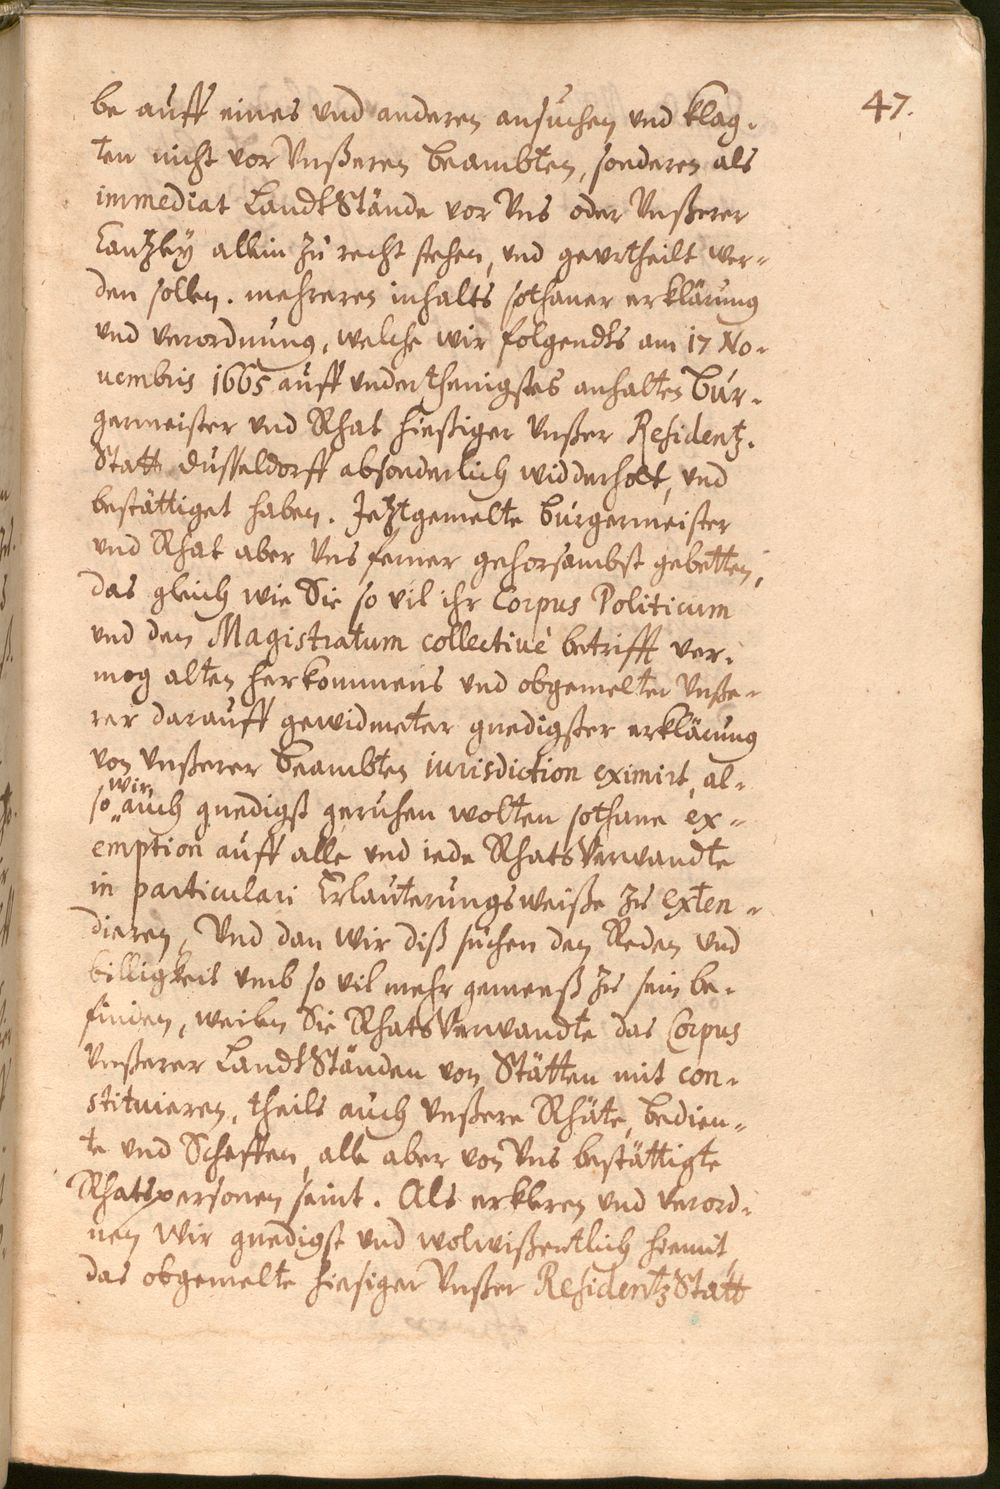 47.
be auff eines und anderen ansuchen und klag-
ten nicht vor Unßeren Beambten, sonderen als
immediat LandtStände vor Uns oder Unßerer
Cantzley allein zu recht stehen, und geurtheilt wer-
den sollen. mehreren inhalts sothaner erklärung
und verordnung, welche wir folgendts am 17 No-
uembris 1665 auff underthenigstes anhalten Bur-
germeister und Rhat hießiger Unßer Residentz-
Statt Dusseldorff absonderlich widderholt, und
bestättiget haben. Jetztgemelte Burgermeister
und Rhat aber Uns ferner gehorsambst gebetten,
das gleich wie Sie so vil ihr Corpus Politicum
und den Magistratum collectiuè betrifft ver-
mog alten herkommens und obgemelter Unße-
rer darauff gewidmeter gnedigster erklärung
von Unßerer Beambten iurisdiction eximirt, al-
so wir auch gnedigst geruhen wolten sothane ex-
emption auff alle und iede RhatsVerwandte
in particulari Erlauterungsweiße zu exten-
dieren, Und dan Wir diß suchen den Reden und
billigkeit umb so vil mehr gemeeß zu sein be-
finden, weilen Sie RhatsVerwandte das Corpus
Unßerer LandtStänden von Stätten mit con-
stituieren, theils auch Unßere Rhäte, bedien-
te und Scheffen, alle aber von Uns bestättigte
Rhatspersonen seint. Als erkleren und verord-
nen Wir gnedigst und wolwißentlich hiemit,
das obgemelte hiesiger Unßer ResidentzStatt